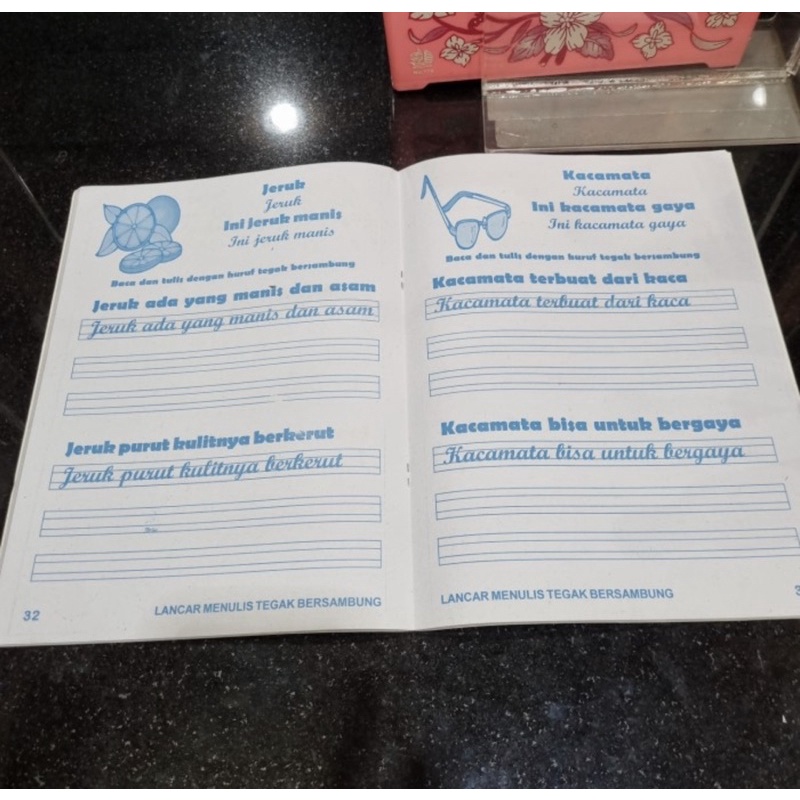 Jeruk
Jeruk
Ini jeruk manis
Ini jeruk manis
Baca dan tulis dengan huruf tegak bersambung
Jeruk ada yang manis dan asam
Jeruk ada yang manis dan asam
Jeruk purut kulitnya berkerut
Jeruk purut kulitnya berkerut
32
LANCAR MENULIS TEGAK BERSAMBUNG
Kacamata
Kacamata
Ini kacamata gaya
Ini kacamata gaya
Baca dan tulis dengan huruf tegak bersambung
Kacamata terbuat dari kaca
Kacamata terbuat dari kaca
Kacamata bisa untuk bergaya
Kacamata bisa untuk bergaya
LANCAR MENULIS TEGAK BERSAMBUNG